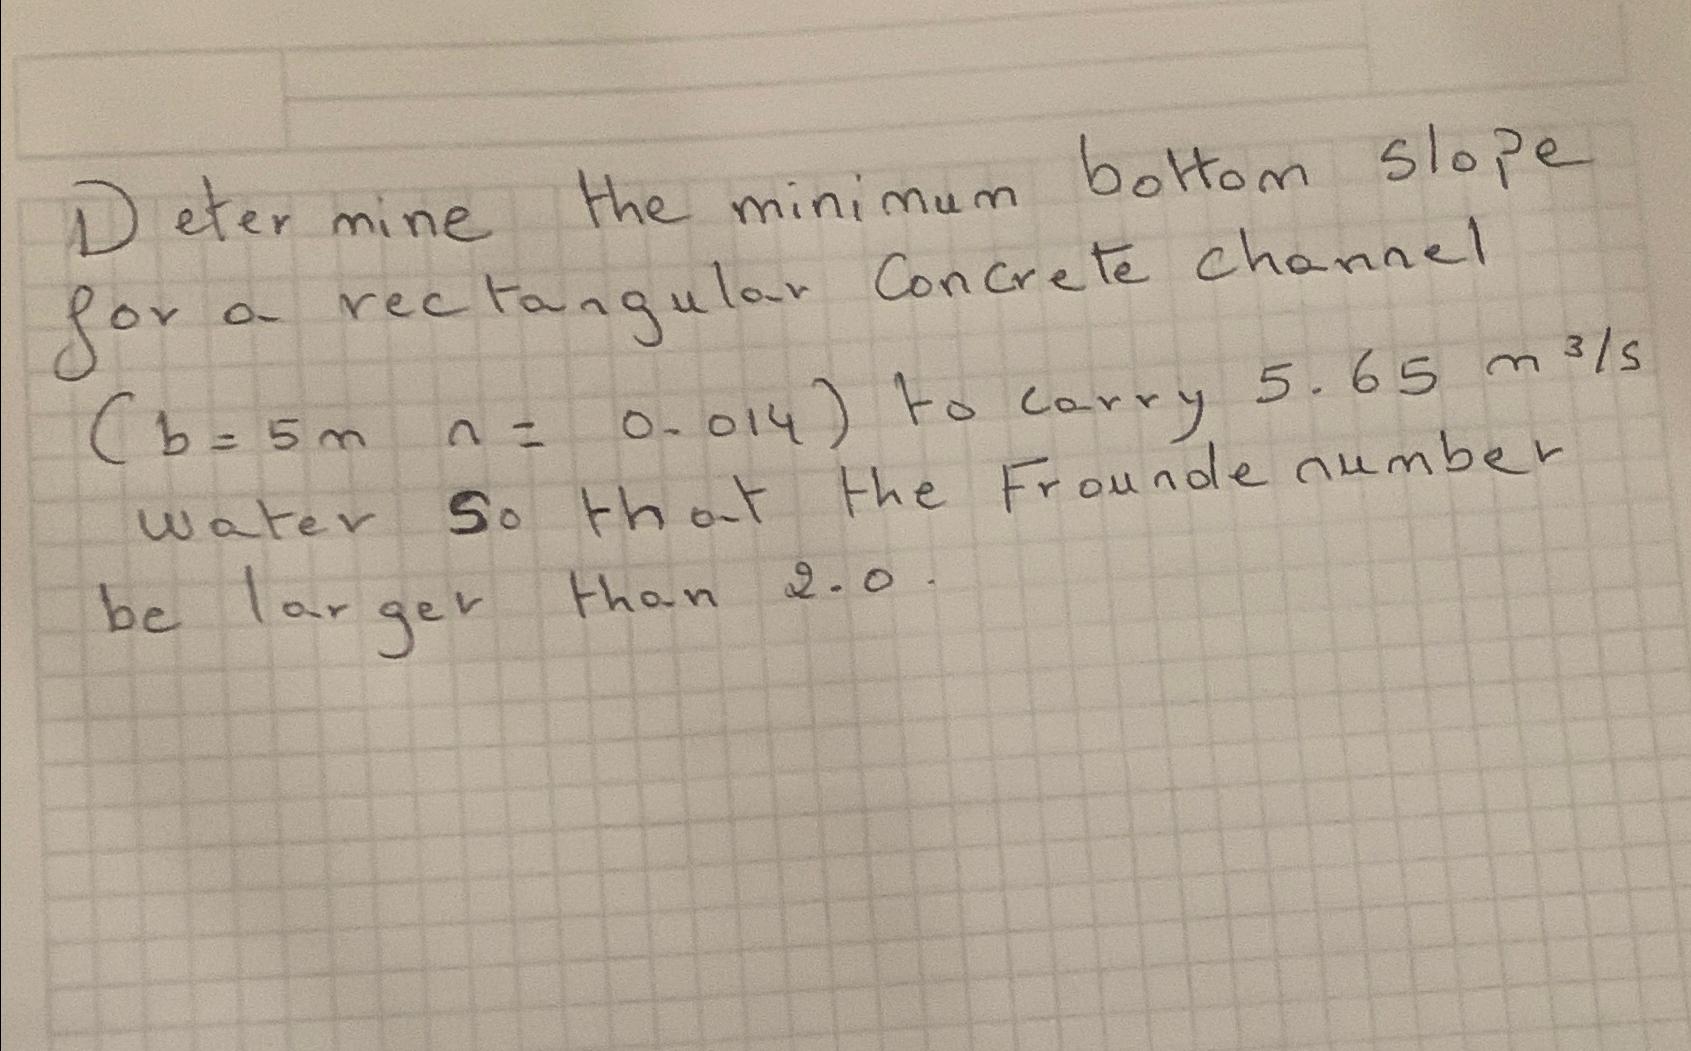 Determine the minimum bottom slope
for a rectangular Concrete channel
(b = 5m n = 0.014) to carry 5.65 m³/s
water so that the Frounde number
be larger than 2.0.